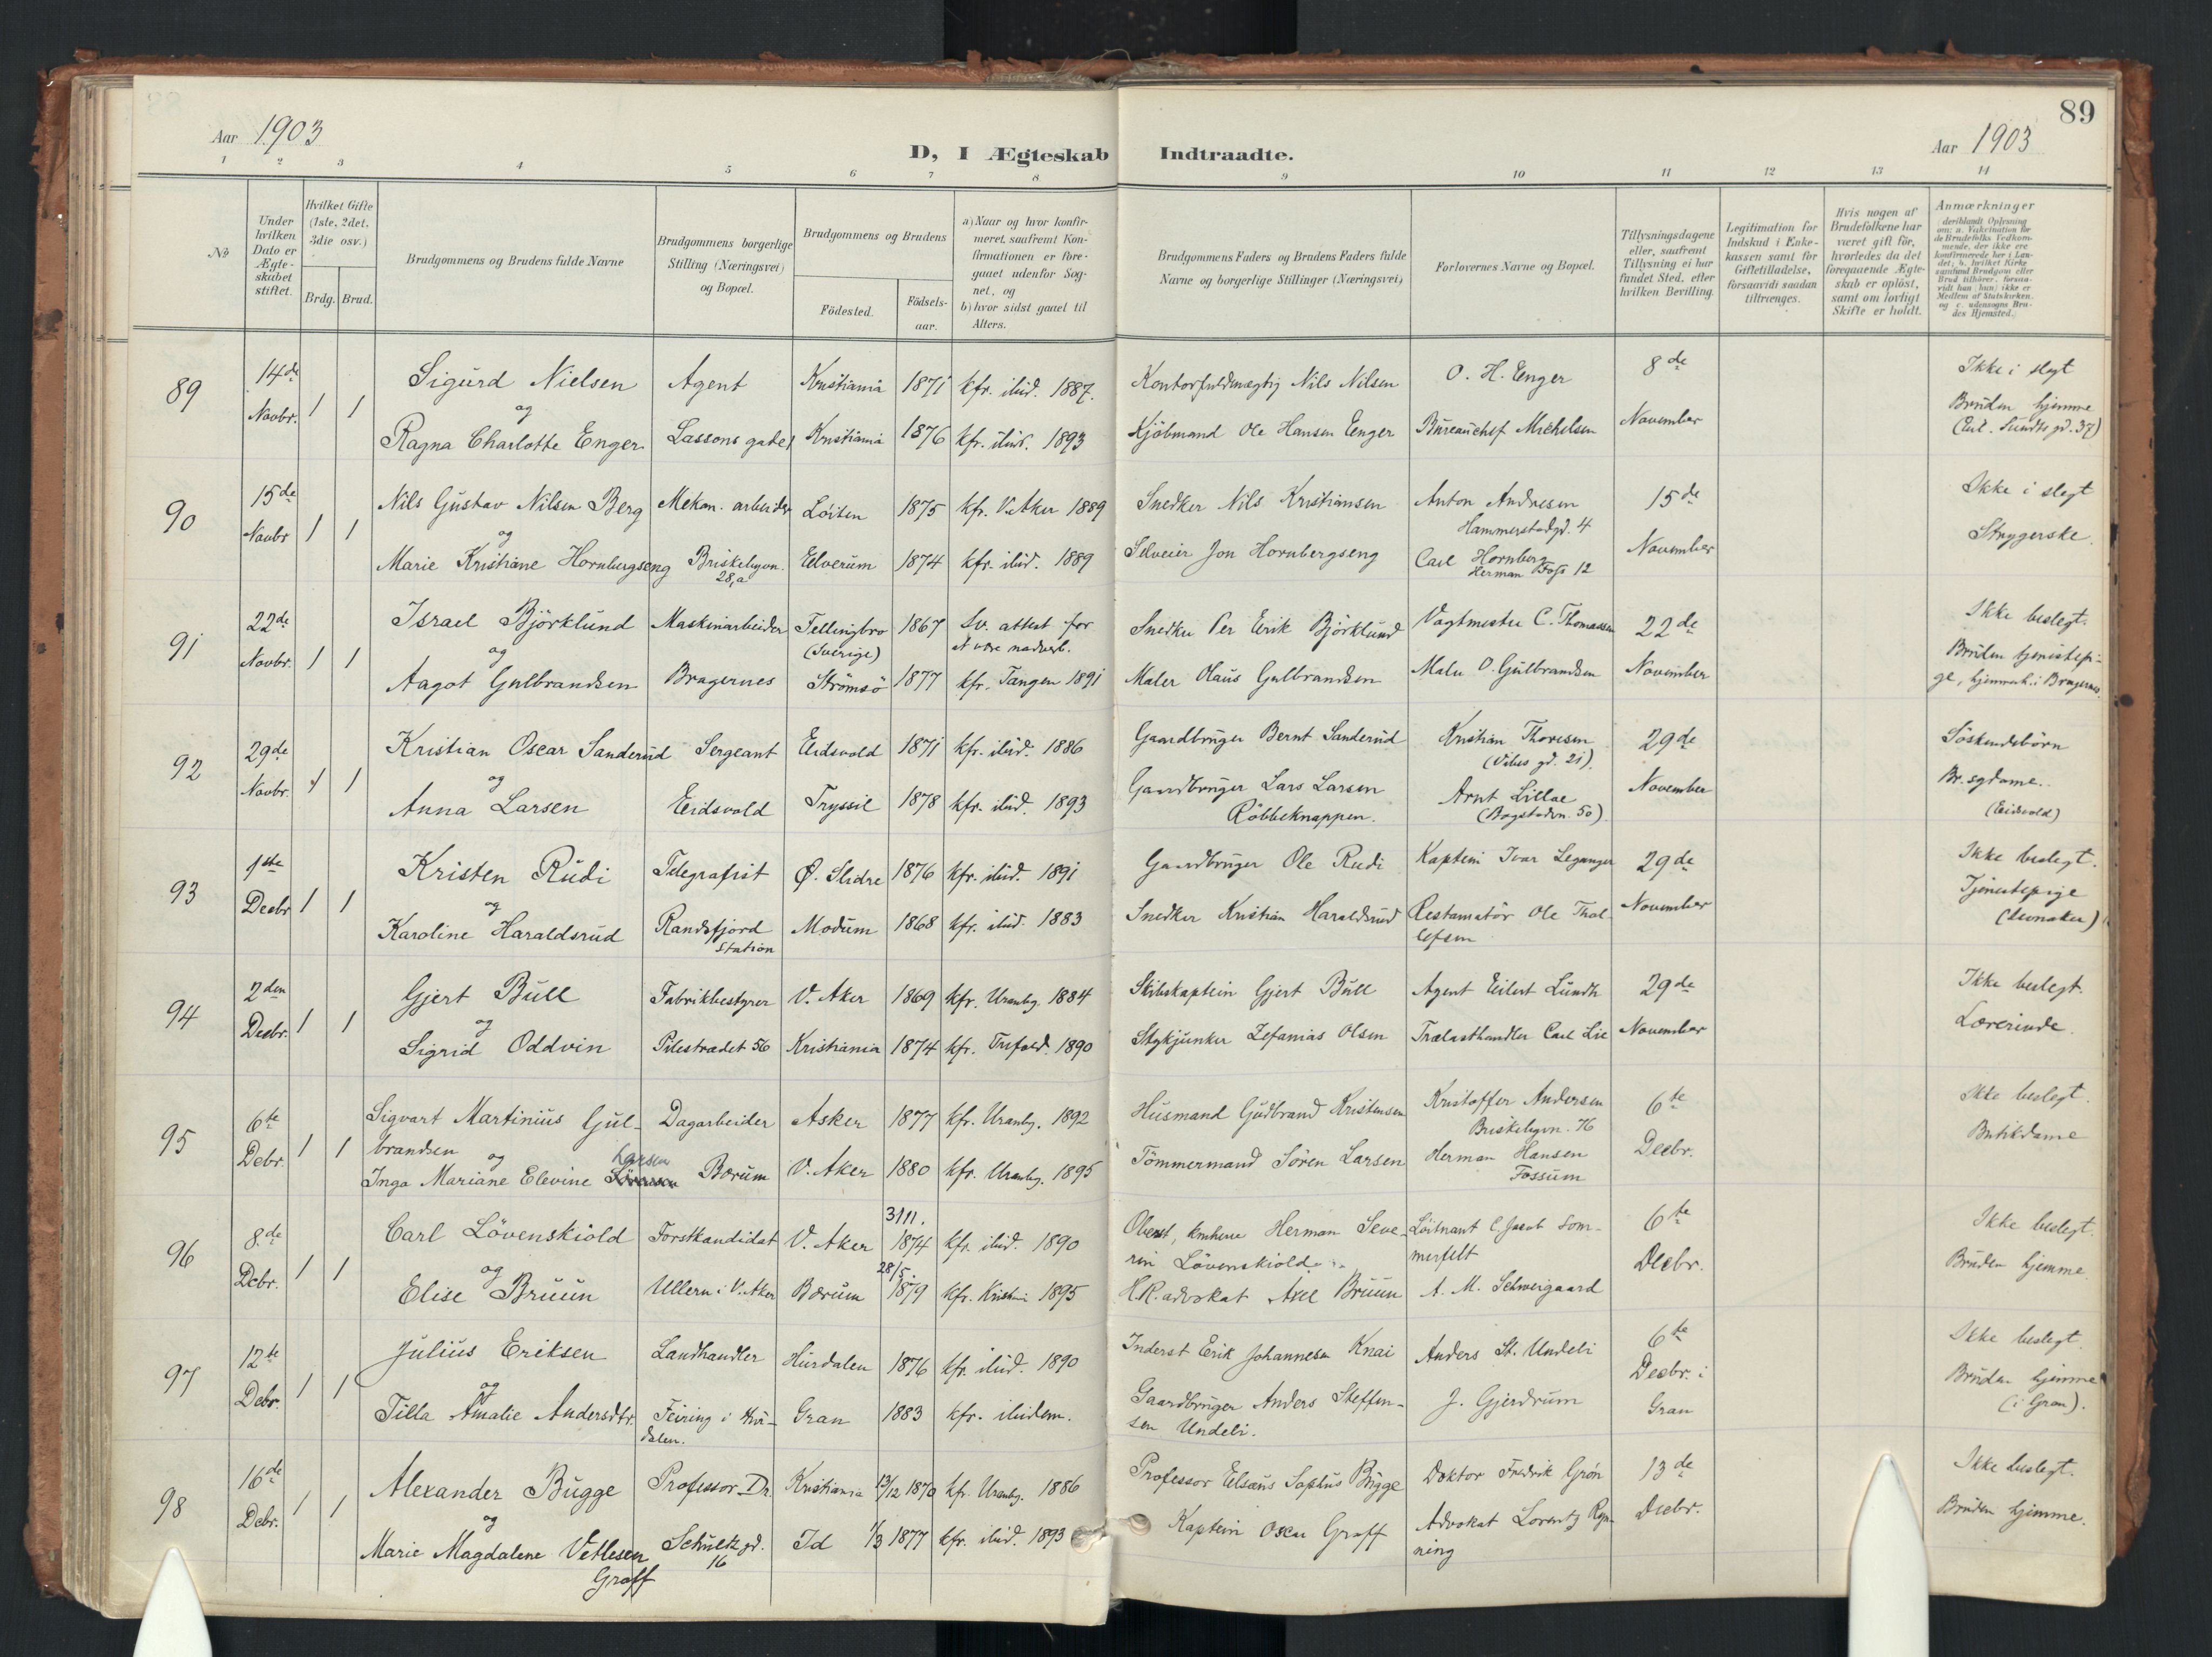 89
Aar 1903
D, I Ægteskab Indtraadte.
Aar 1903
1 2 3 4 5 6 7 8 9 10 11 12 13 14
№
Under hvilken Dato er Ægteskabet stiftet.
Hvilket Gifte (1ste, 2det, 3die osv.)
Brdg. Brud.
Brudgommens og Brudens fulde Navne
Brudgommens borgerlige Stilling (Næringsvei) og Bopæl.
Brudgommens og Brudens
Födested. Födsels-aar.
a) Naar og hvor konfirmeret, saafremt Konfirmationen er foregaaet udenfor Sognet, og
b) hvor sidst gaaet til Alters.
Brudgommens Faders og Brudens Faders fulde Navne og borgerlige Stillinger (Næringsvei)
Forlovernes Navne og Bopæl.
Tillysningsdagene eller, saafremt Tillysning ei har fundet Sted, efter hvilken Bevilling.
Legitimation for Indskud i Enkekassen samt for Giftetilladelse, forsaavidt saadan tiltrænges.
Hvis nogen af Brudefolkene har været gift för, hvorledes da det foregaaende Ægteskab er oplöst, samt om lovligt Skifte er holdt.
Anmærkninger (deriblandt Oplysning om: a. Vakcination for de Brudefolks Vedkommende, der ikke ere konfirmerede her i Landet; b. hvilket Kirkesamfund Brudgom eller Brud tilhörer, forsaavidt han (hun) ikke er Medlem af Statskirken, og c. udensogns Brudes Hjemsted.)
89 14de Novbr. 1 1 Sigurd Nielsen Agent Kristiania 1871 kfr. ibid. 1887. Kontorfuldmægtig Nils Nilsen O. H. Enger 8de November Ikke i slegt
og
Ragna Charlotte Enger Lassons gade 1 Kristiania 1876 kfr. ibid. 1893 Kjöbmand Ole Hansen Enger Bureauchef Michelsen Bruden hjemme
(Eil. Sundts gd. 37)
90 15de Novbr 1 1 Nils Gustav Nilsen Berg Mekan. arbeider Löiten 1875 kfr. V. Aker 1889 Snedker Nils Kristiansen Anton Andresen Hammerstadgd. 4 15de November Ikke i slegt
og
Marie Kristiane Hornbergseng Briskebyvn. 28,a Elverum 1874 kfr. ibid. 1889 Selveier Jon Hornbergseng Carl Hornberg Herman Foss 12 Strygerske.
91 22de Novbr. 1 1 Israel Björklund Maskinarbeider Tellingbro (Sverige) 1867 Sv. attest for at være nadverb. Snedker Per Erik Björklund Vagtmester C. Thomassen 22de November Ikke beslegt.
og
Aagot Gulbrandsen Bragernes Strömsö 1877 kfr. Tangen 1891 Maler Olaus Gulbrandsen Maler O. Gulbrandsen Bruden tjenistepi-
ge, hjemmeh. i Bragernes.
92 29de Novbr. 1 1 Kristian Oscar Sanderud Sergeant Eidsvold 1871 kfr. ibid. 1886 Gaardbruger Bernt Sanderud Kristian Thoresen (Vibes gd. 21). 29de November Söskendebörn
og
Anna Larsen Eidsvold Tryssil 1878 kfr. ibid. 1893 Gaardbruger Lars Larsen Röbbeknappen. Arnt Lilloe (Bogstadvn. 50). Br. sydame.
(Eidsvold)
93 1ste Decbr 1 1 Kristen Rudi Telegrafist Ø. Slidre 1876 kfr. ibid. 1891 Gaardbruger Ole Rudi Kaptein Ivar Leganger 29de November Ikke beslegt.
og
Karoline Haraldsrud Randsfjord Station Modum 1868 kfr. ibid. 1883 Snedker Kristian Haraldsrud Restauratör Ole Thol-
lefsen Tjenestepige
94 2den Decbr. 1 1 Gjert Bull Fabrikbestyrer V. Aker 1869 kfr. Uranbg. 1884 Skibskaptein Gjert Bull Agent Eilert Lundh 29de November Ikke beslegt.
og
Sigrid Oddvin Pilestrædet 56 Kristiania 1874 kfr. Trefold. 1890 Stykjunker Zefanias Olsen Trælasthandler Carl Lie Lærerinde.
95 6te Debr. 1 1 Sigvart Martinius Gul-
brandsen Dagarbeider Asker 1877 kfr. Uranbg. 1892 Husmand Gudbrand Kristensen Kristoffer Andersen Briskebyvn. 76 6te Decbr. Ikke beslegt.
og
Inga Mariane Elevine Sörensen Larsen Bærum V. Aker 1880 kfr. Uranbg. 1895 Tömmermand Sören Larsen Herman Hansen Fossum Butikdame
96 8de Debr. 1 1 Carl Lövenskiold Forstkandidat V. Aker 31/1. 1874 kfr. ibid. 1890 Oberst, kmherre Herman Seve-
rin Lövenskiold Löitnant C. Jacob Som-
merfelt 6te Decbr. Ikke beslegt.
og
Elise Bruun Ullern i V. Aker Bærum 28/5. 1879 kfr. Kristni 1895 H.R. advokat Axel Bruun A. M. Schweigaard Bruden hjemme.
97 12te Debr. 1 1 Julius Eriksen Landhandler Hurdalen 1876 kfr. ibid. 1890 Inderst Erik Johannesen Knai Anders St. Undeli 6te Decbr. i Gran Ikke beslegt.
og
Tilla Amalie Andersdtr. Feiring i Hur-
dalen. Gran 1883 kfr. ibidem. Gaardbruger Anders Steffen-
sen Undeli. J. Gjerdrum Bruden hjemme
(i Gran).
98 16de Debr. 1 1 Alexander Bugge Professor Dr. Kristiania 13/12 1870 kfr. Uranbg. 1886 Professor Elseus Sophus Bugge Doktor Fredrik Grön 13de Decbr. Ikke beslegt.
og
Marie Magdalene Vetlesen Graff Schultz gd. 16 Id 1/3 1877 kfr. ibid. 1893 Kaptein Oscar Graff Advokat Lorentz Ryn-
ning Bruden hjemme.